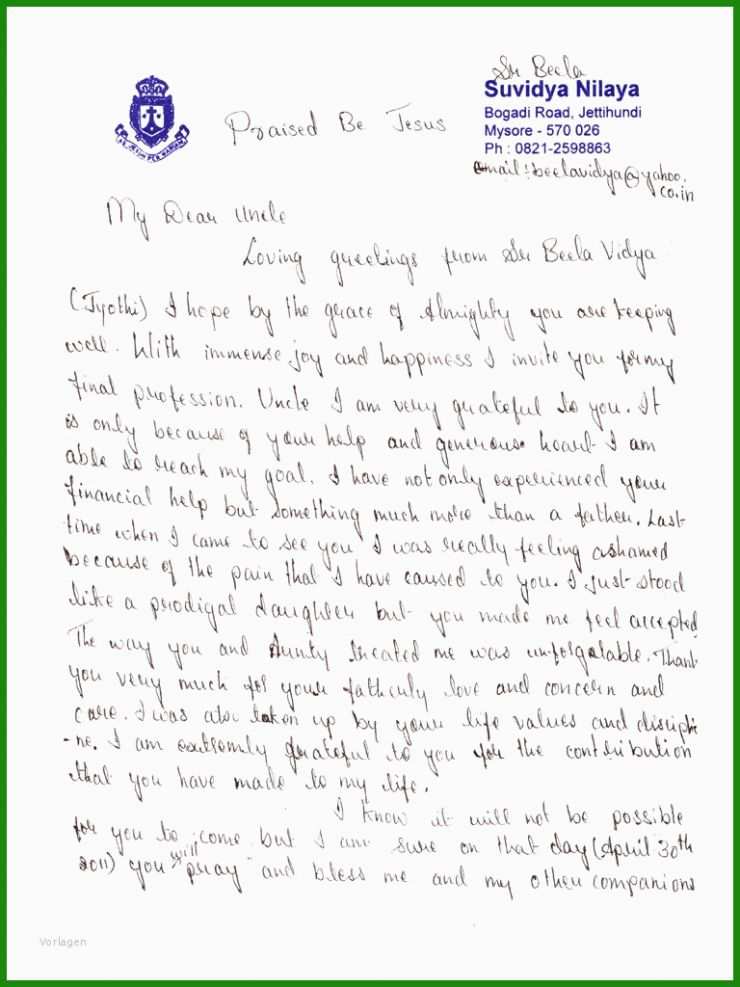 Sr Beela
Suvidya Nilaya
Bogadi Road, Jettihundi
Mysore - 570 026
Ph : 0821-2598863
email : beelavidya@yahoo.
co.in
Praised Be Jesus
My Dear Uncle
Loving greetings from Sr Beela Vidya
(Jyothi) I hope by the grace of Almighty you are keeping
well. With immense joy and happiness I invite you for my
final profession. Uncle I am very grateful to you. It
is only because of your help and generous heart I am
able to reach my goal. I have not only experienced your
financial help but something much more than a father. Last
time when I came to see you I was really feeling ashamed
because of the pain that I have caused to you. I just stood
like a prodigal daughter but you made me feel accepted.
The way you and Aunty treated me was unforgatable. Thank
you very much for your fatherly love and concern and
care. I was also taken up by your life values and discipli
-ne. I am extremly grateful to you for the contribution
that you have made to my life.
I know it will not be possible
for you to come but I am sure on that day (April 30th
2011) you will pray and bless me and my other companions
Vorlagen